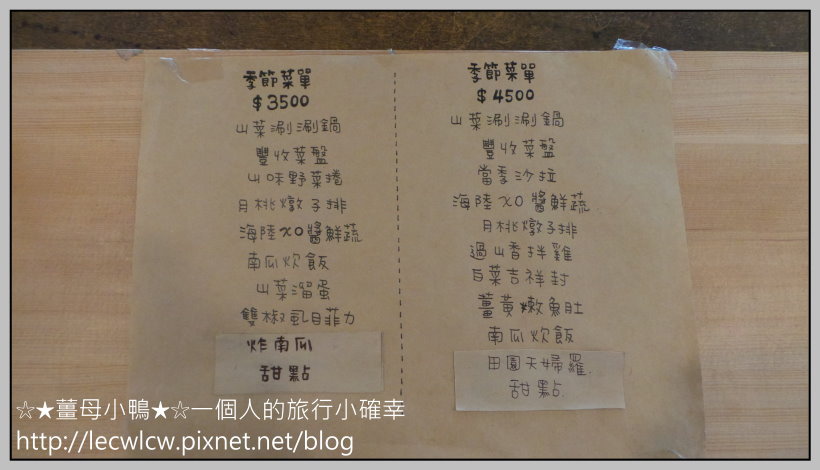 季節菜單
$3500
山菜涮涮鍋
豐收菜盤
山味野菜捲
月桃燉子排
海陸XO醬鮮蔬
南瓜炊飯
山菜溜蛋
雙椒虱目菲力
炸南瓜
甜點
季節菜單
$4500
山菜涮涮鍋
豐收菜盤
當季沙拉
海陸XO醬鮮蔬
月桃燉子排
過山香拌雞
白菜吉祥封
薑黃嫩魚肚
南瓜炊飯
田園天婦羅.
甜點.
☆★薑母小鴨★☆一個人的旅行小確幸
http://lecwlcw.pixnet.net/blog